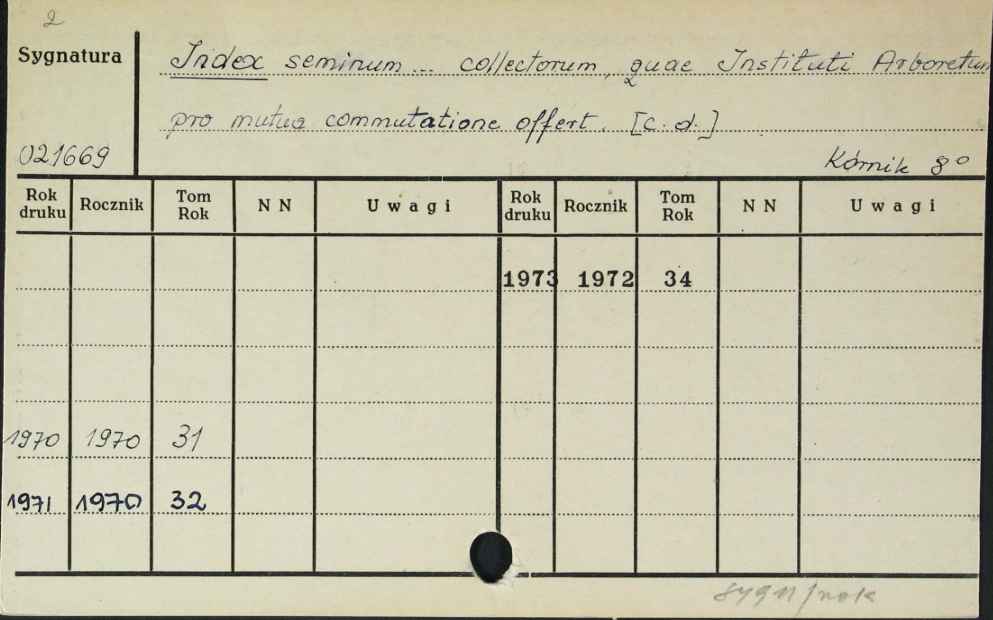 2
Sygnatura
Index seminum... collectorum, quae Instituti Arboretum
pro mutua commutatione offert. [c.d.]
021669
Kórnik 8°
Rok druku Rocznik Tom Rok NN Uwagi Rok druku Rocznik Tom Rok NN Uwagi
1973 1972 34
1970 1970 31
1971 1970 32
sygn/rok